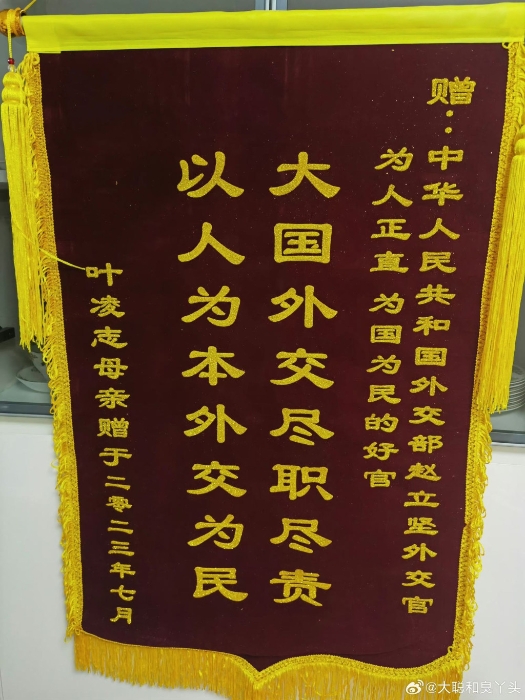 赠：中华人民共和国外交部赵立坚外交官
为人正直 为国为民的好官
大国外交尽职尽责
以人为本外交为民
叶凌志母亲赠于二零二三年七月
@大聪和臭丫头